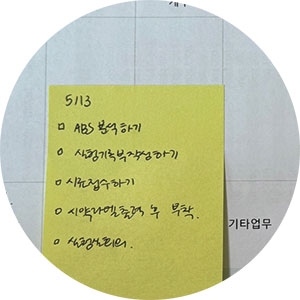 5/13
□ ABS 분석하기
□ 실험기록부작성하기
□ 시료접수하기
□ 시약라벨출력 후 부착.
□ 실험실회의.
기타업무